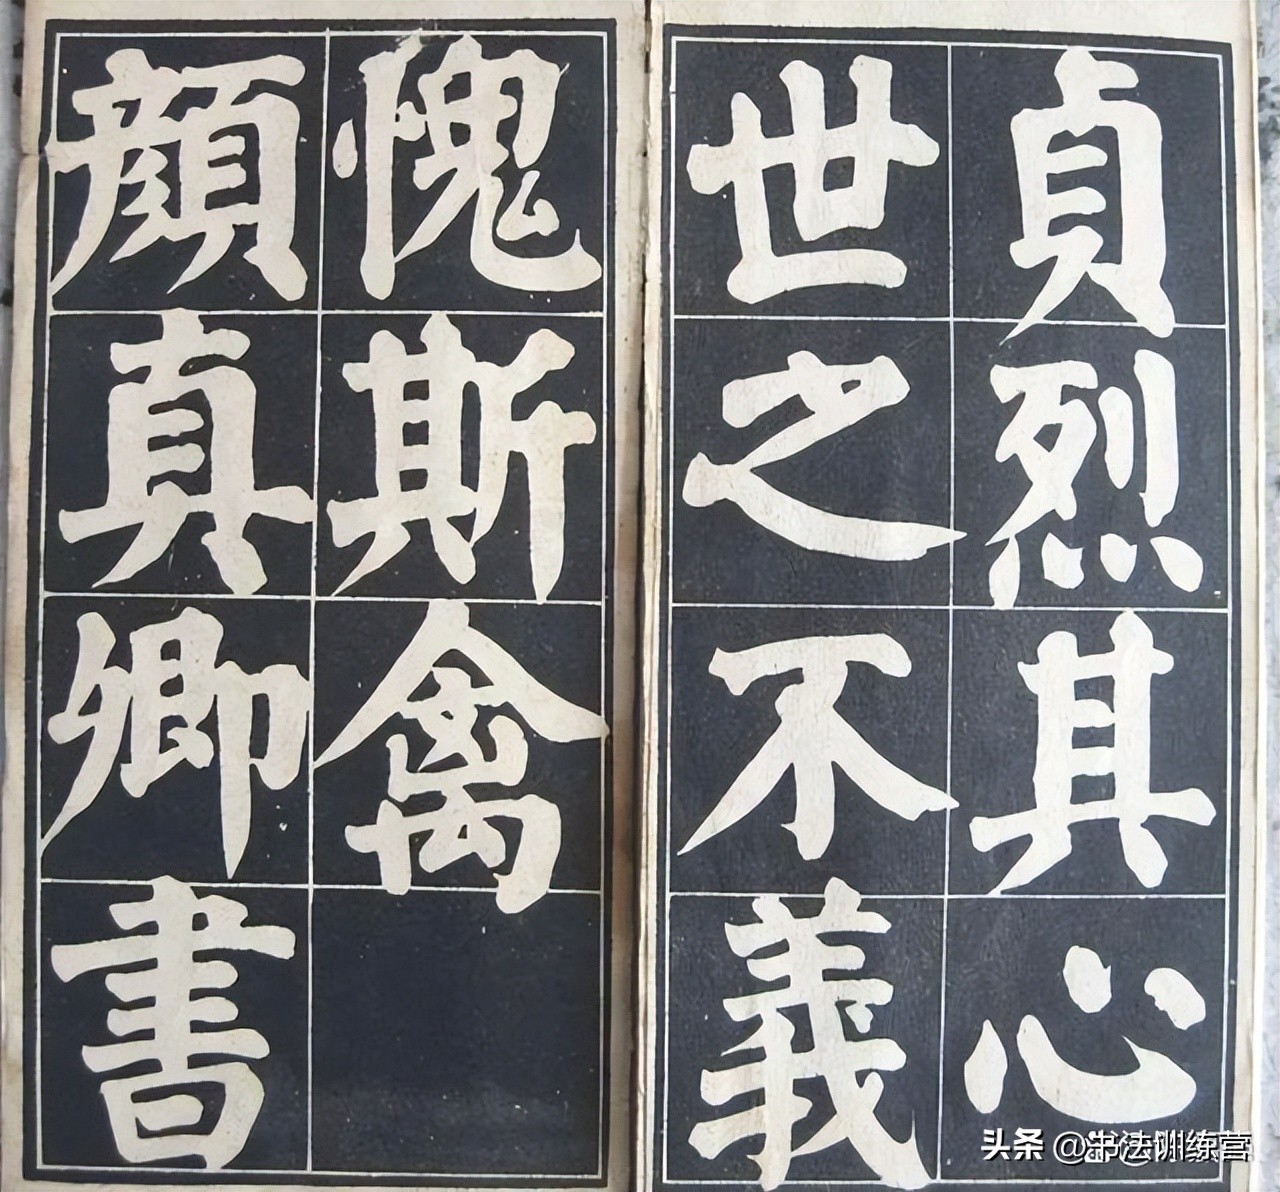 貞烈其心
世之不義
愧斯禽
顔真卿書
头条 @书法训练营